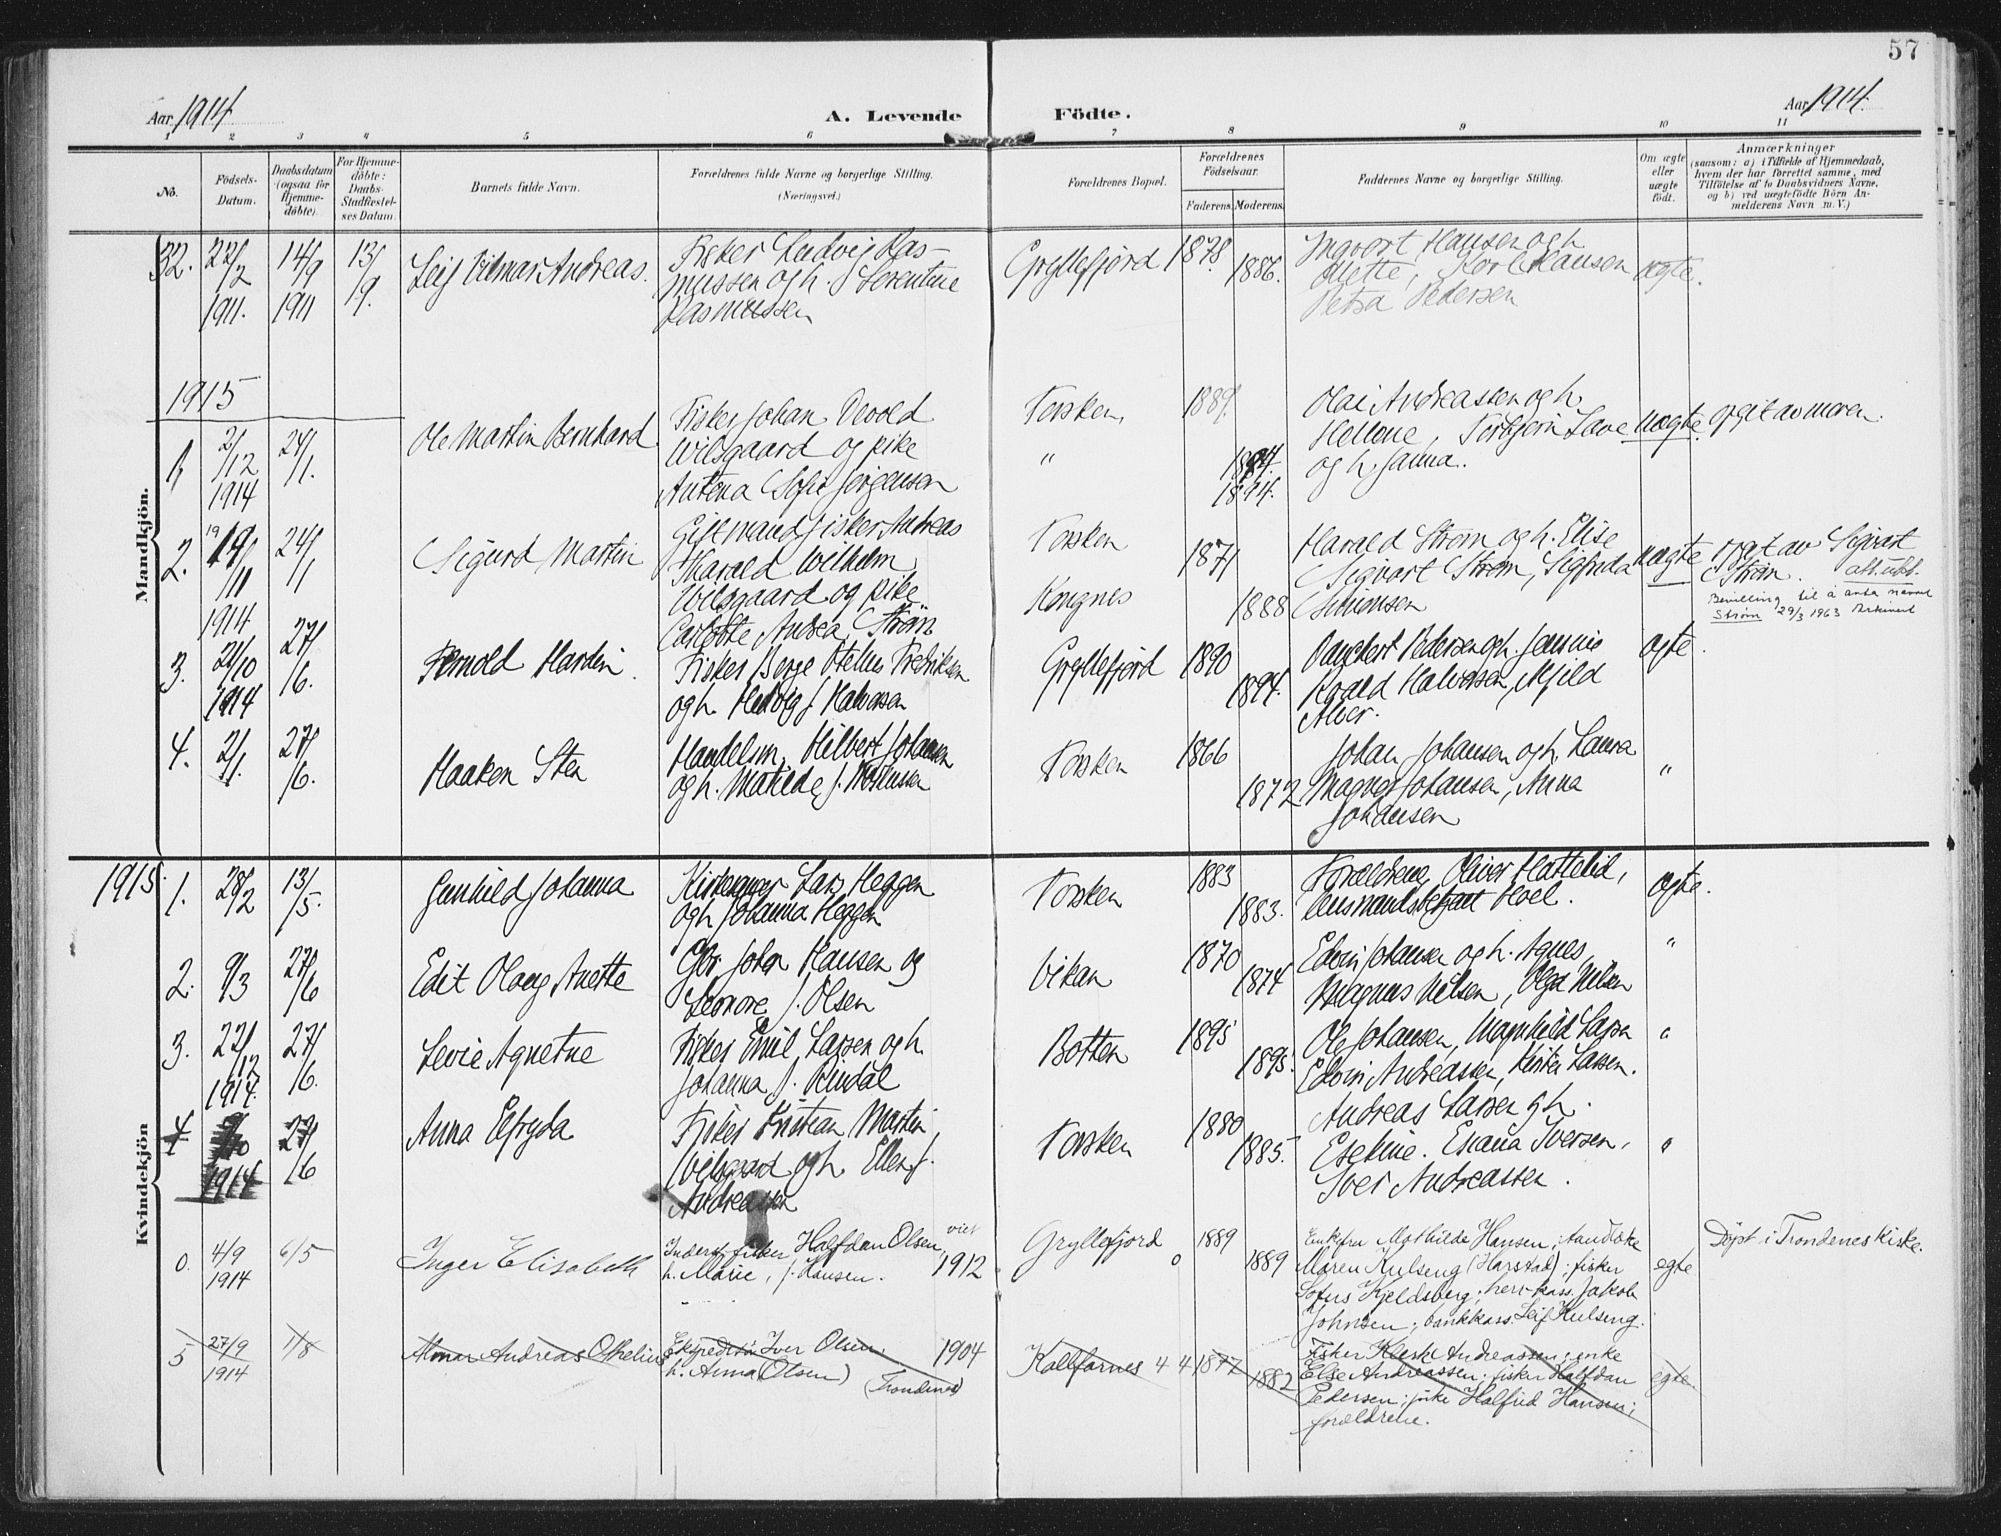 57
Aar 1914.
A. Levende Födte.
Aar 1914.
1 2 3 4 5 6 7 8 9 10 11
No.
Födsels-
Datum.
Daabsdatum
(ogsaa for
Hjemme-
døbte).
For Hjemme-
døbte:
Daabs-
Stadfæstel-
ses Datum.
Barnets fulde Navn.
Forældrenes fulde Navne og borgerlige Stilling.
(Næringsvei.)
Forældrenes Bopæl.
Forældrenes
Födselsaar.
Faderens. Moderens.
Faddernes Navne og borgerlige Stilling.
Om ægte
eller
uægte
født.
Anmærkninger
(saasom: a) i Tilfælde af Hjemmedaab,
hvem der har forrettet samme, med
Tilføielse af to Daabsvidners Navne,
og b) ved uægtefödte Börn An-
melderens Navn m. V.)
Mandkjön.
32. 22/2 1911. 14/9 1911 13/9.
Leif Vilmar Andreas.
Fisker Ludvig Ras-
mussen og h. Serentine
Rasmussen
Gryllefjord 1878. 1886.
Ingvart Hansen og h.
Mette, Karl Hansen
Petra Pedersen
ægte.
1915
1. 2/12 1914 24/1.
Ole Martin Bernhard
Fisker Johan Devold
Wilsgaard og pike
Antona Sofie Jørgensen
Torsken, 1889.
" 1894.
Olai Andreassen og h.
Hellene, Torbjørn Lave
og h. Janna.
uægte. opgit av moren.
2. 19/11 1914 24/1
Sigurd Martin
Gift mand fisker Andreas
Harald Wilhelm
Wilsgaard og pike
Carlotte Andrea Strøm
Torsken 1871
Kongnes 1888
Harald Strøm og h. Elise
Sigvart Strøm, Sigfrida
Simonsen
uægte
opgit av Sigvart
Strøm.
Bevilling til å anta navnet
Strøm 29/3 1963 Arkivert
3. 21/10 1914 27/6.
Fernold Hardin.
Fisker Berge Helius Fredriksen
og h. Hedvig f. Halvorsen
Gryllefjord 1890 1894.
Danckert Pedersen og h. Jennie
Roald Halvorsen, Mjild
Alver.
ægte.
4. 2/1. 27/6.
Haaken Sten
Handelsm. Hilbert Johansen
og h. Matilde f.
Torsken 1866 1872
Johan Johansen og h. Laura
Magna Johansen, Anna
Johansen
"
Kvindekjön
1915. 1. 28/2 13/5.
Gunhild Johanna
Kirkesanger Lars Heggen
og h. Johanna Heggen
Torsken 1883 1883.
Forældrene, Oliver Hattelid,
Lensmandsbetjent Hoel.
ægte.
2. 9/3 27/6
Edit Olaug Anette
Gbr. Johan Hansen og
Leonore f. Olsen
Vikan 1870 1874
Edvin Johansen og h. Agnes,
Magnus Nilsen, Olga Nilsen
"
3. 22/12 1914. 27/6.
Levie Agnetne
Fisker Emil Larsen og h.
Johanna f.
Botten 1895 1895.
Ole Johansen, Magnhild Larsen
Edvin Andreassen, Larsen.
"
4 9/10 1914 27/6
Anna Elfryda
Fisker Kristian Martin
Wilsgaard og h. Ellen f.
Andreassen
Torsken 1880 1885.
Andreas Larsen og h.
Esekine. Enana Iversen,
Iver Andreassen.
"
0. 4/9 1914 6/5
Inger Elisabeth
Inderst fisker Halfdan Olsen,
h. Marie, f. Hansen.
viet
1912
Gryllefjord 1889 1889
Enkefru Mathilde Hansen; tandlæke
Maren Kulseng (Harstad); fisker
Sofus Kjeldsberg; herr. kass. Jakob
Johnsen; bankkass. Leif Kulseng.
egte
Døpt i Trondenes kirke.
5 27/9 1914 1/8
Almar Andreas Othelius
Ekspeditør Iver Olsen,
h. Anna (Olsen)
1904
(Trondenes)
Kalfarnes 4 4 1877 1882
Fisker Andreassen; enke
Else Andreassen; fisker Halfdan
Pedersen; pike Halfrid Hansen;
forældrene.
egte.